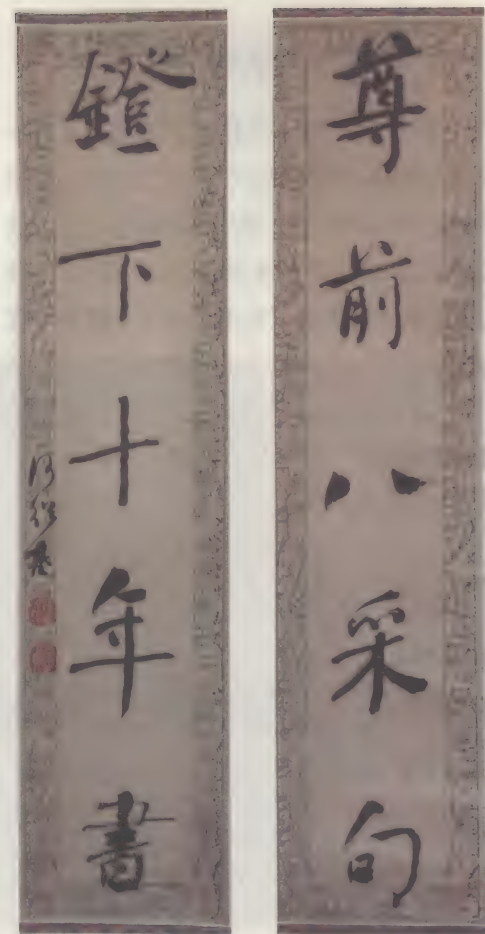 尊前八采句
鐙下十年書
何紹基